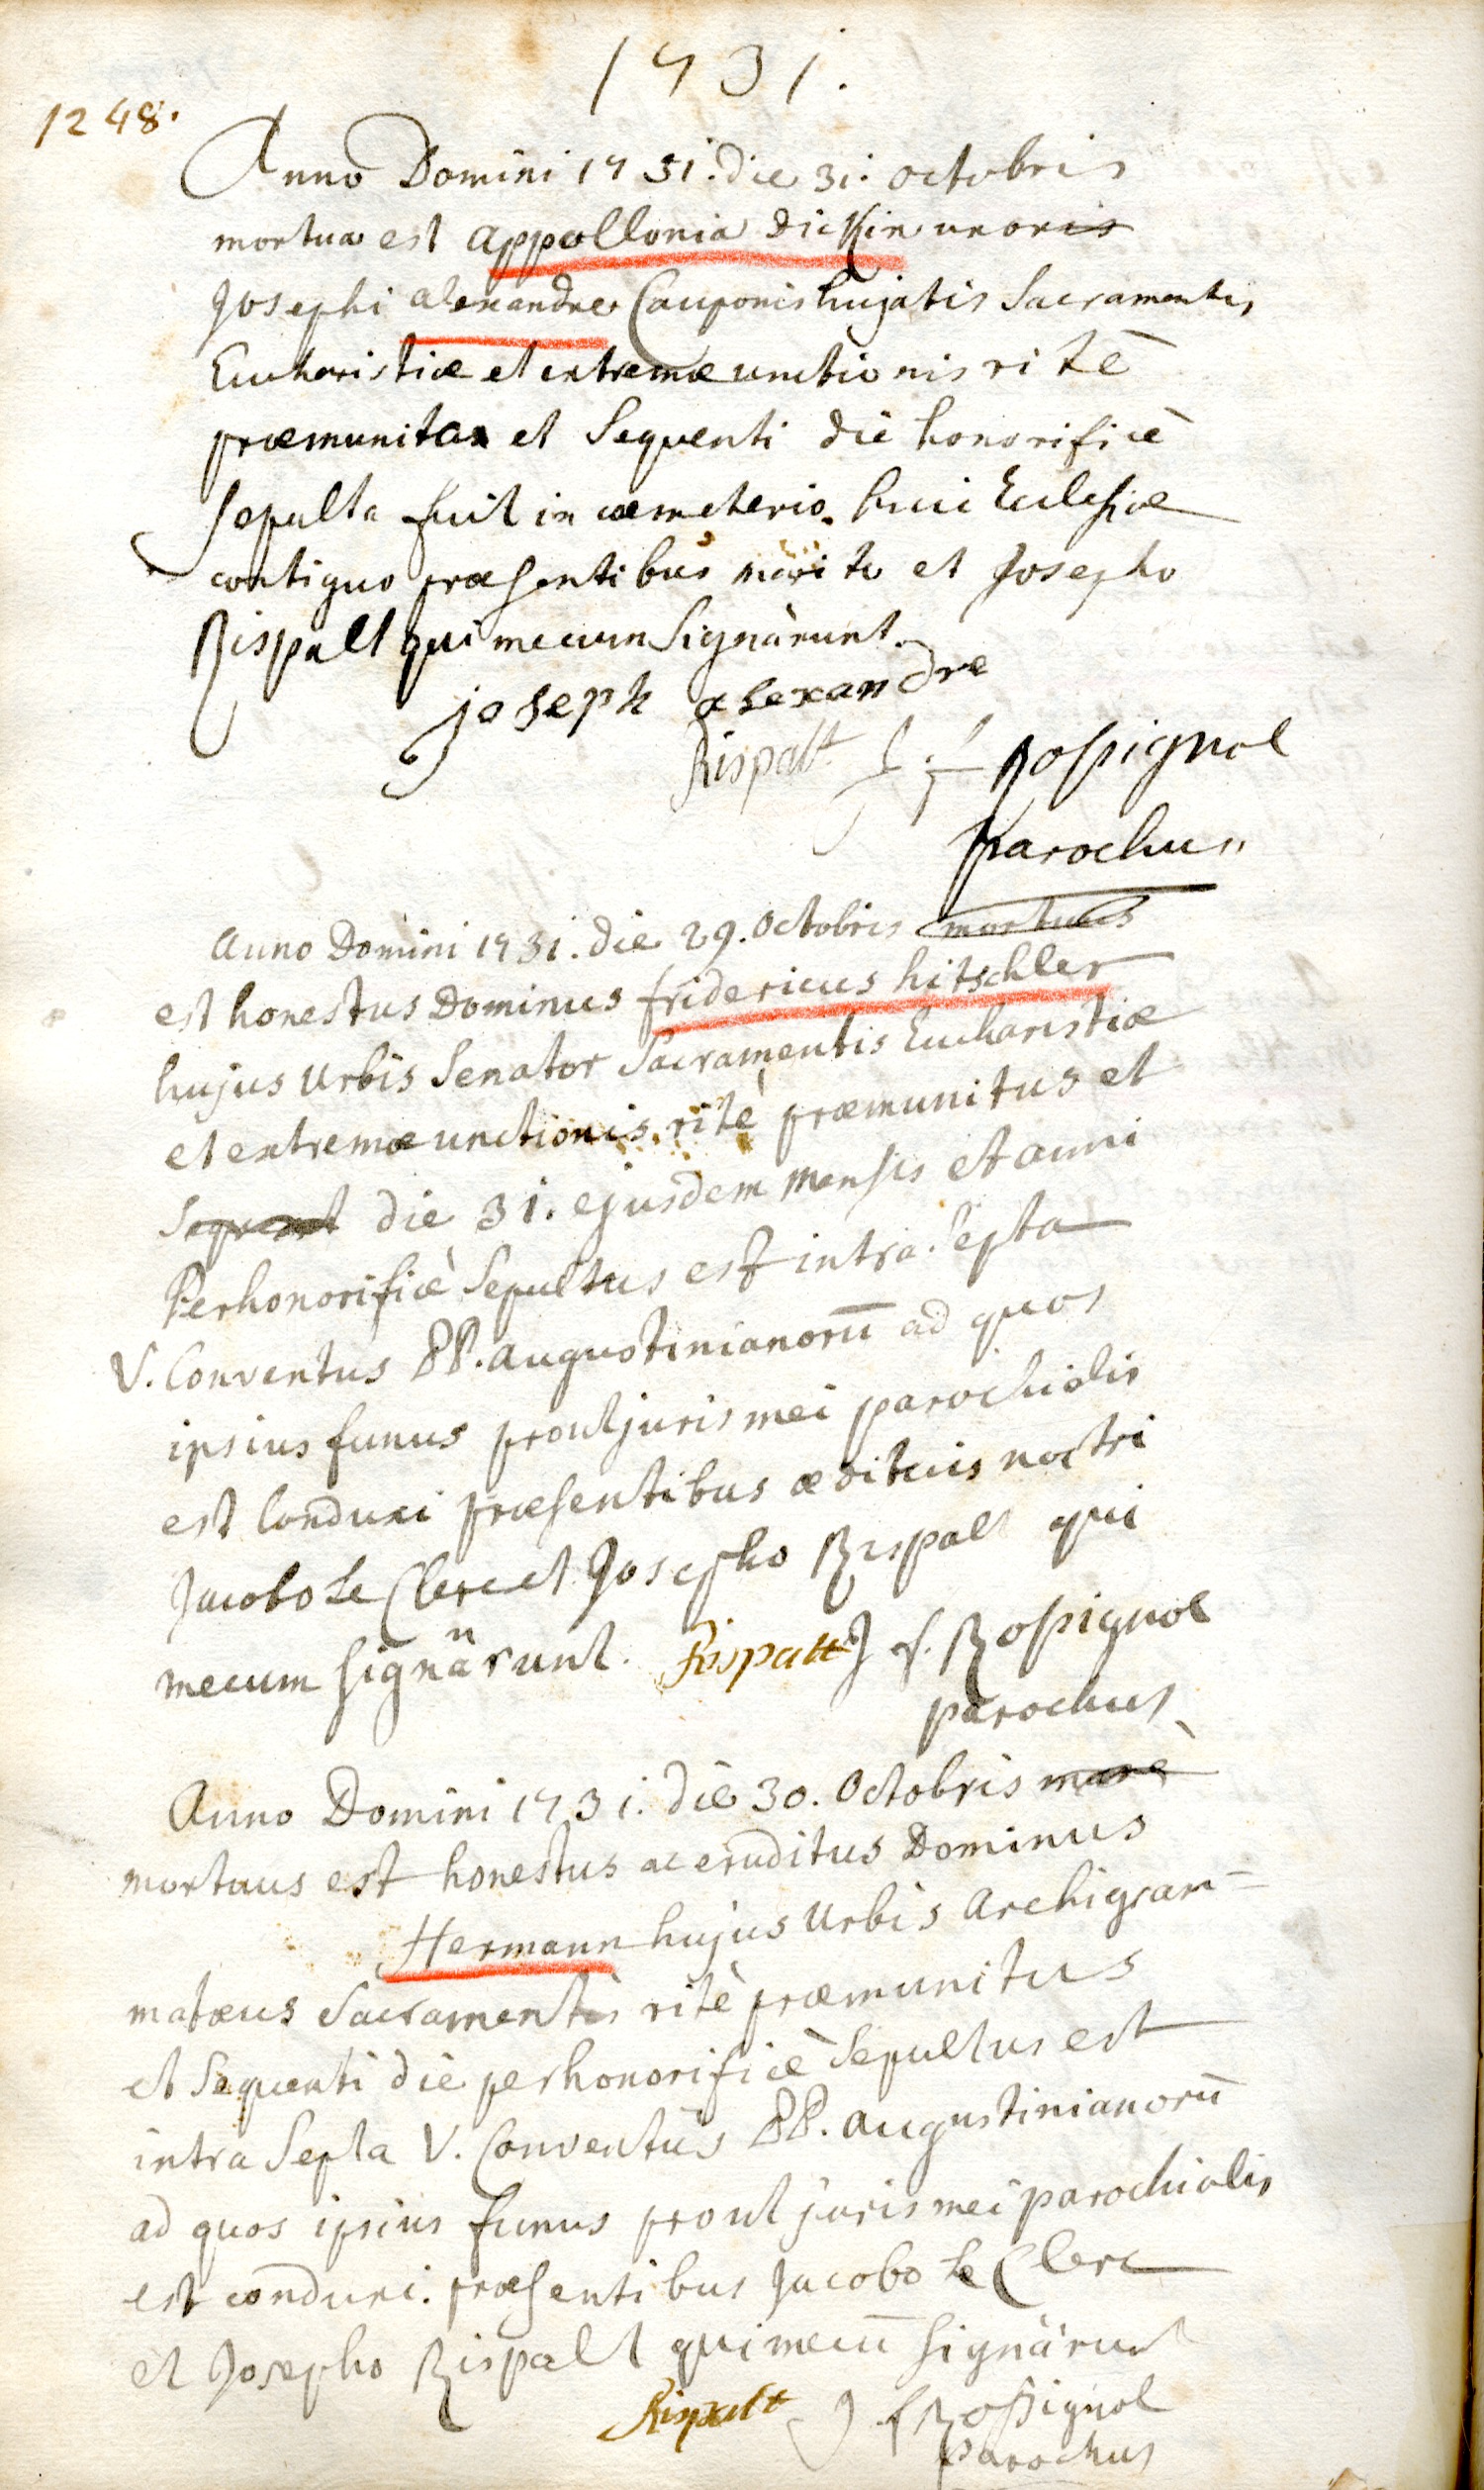 1731.
1248.
Anno Domini 1731. die 31. octobris
mortua est appollonia dickin uxoris
Josephi alexandre Cauponis hujatis Sacramentis
Eucharistiæ et extremæ unctionis ritè
præmunita et Sequenti die honorificè
sepulta fuit in cæmeterio huic Ecclesiæ
contiguo præsentibus marito et Josepho
Rispalt qui mecum Signàrunt.
joseph alexandre
Rispalt J. f Rossignol
parochus
Anno Domini 1731. die 29. Octobris mortuus
est honestus Dominus fridericus hitschler
hujus Urbis Senator Sacramentis Eucharistiæ
et extremæ unctionis ritè præmunitus et
die 31. ejusdem mensis et anni
Perhonorificè Sepultus est intra Septa
V. Conventus PP. augustinianorū ad quos
ipsius funus prout juris mei parochialis
est Conduxi præsentibus ædituis nostri
Jacobo Le Clerc et Josepho Rispalt qui
mecum signârunt. Rispalt J f. Rossignol
parochus
Anno Domini 1731. die 30. Octobris manè
mortuus est honestus ac eruditus Dominus
Hermann hujus Urbis Archigram=
matæus Sacramentis ritè præmunitus
et Sequenti die perhonorificè Sepultus est
intra Septa V. Conventûs PP. augustinianorū
ad quos ipsius funus prout juris mei parochialis
est conduxi. præsentibus Jacobo Le Clerc
et Josepho Rispalt qui mecū signârunt
Rispalt J f Rossignol
parochus